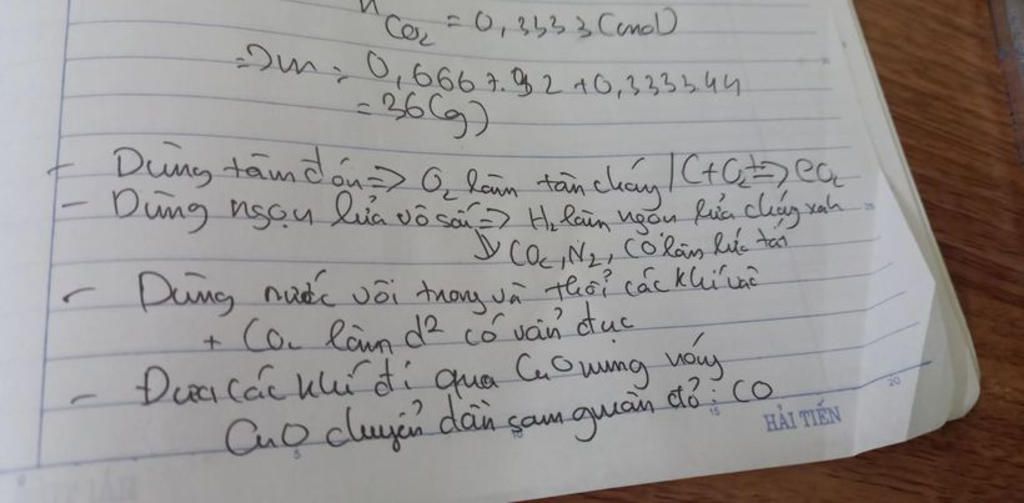 n CO₂ = 0,3333 (mol)
=> m = 0,6667.32 + 0,3333.44
= 36 (g)
- Dùng tàm đóm => O₂ làm tàn cháy | C + O₂ => CO₂
- Dùng ngọn lửa vô sai => H₂ làm ngọn lửa cháy xanh
CO₂, N₂, CO làm lửa tắt
- Dùng nước vôi trong và thổi các khí vào
+ CO₂ làm d² có vẩn đục
- Đưa các khí đi qua CuO nung nóng
CuO chuyển dần sam quặn đỏ : CO
HẢI TIẾN
5 10 15 20